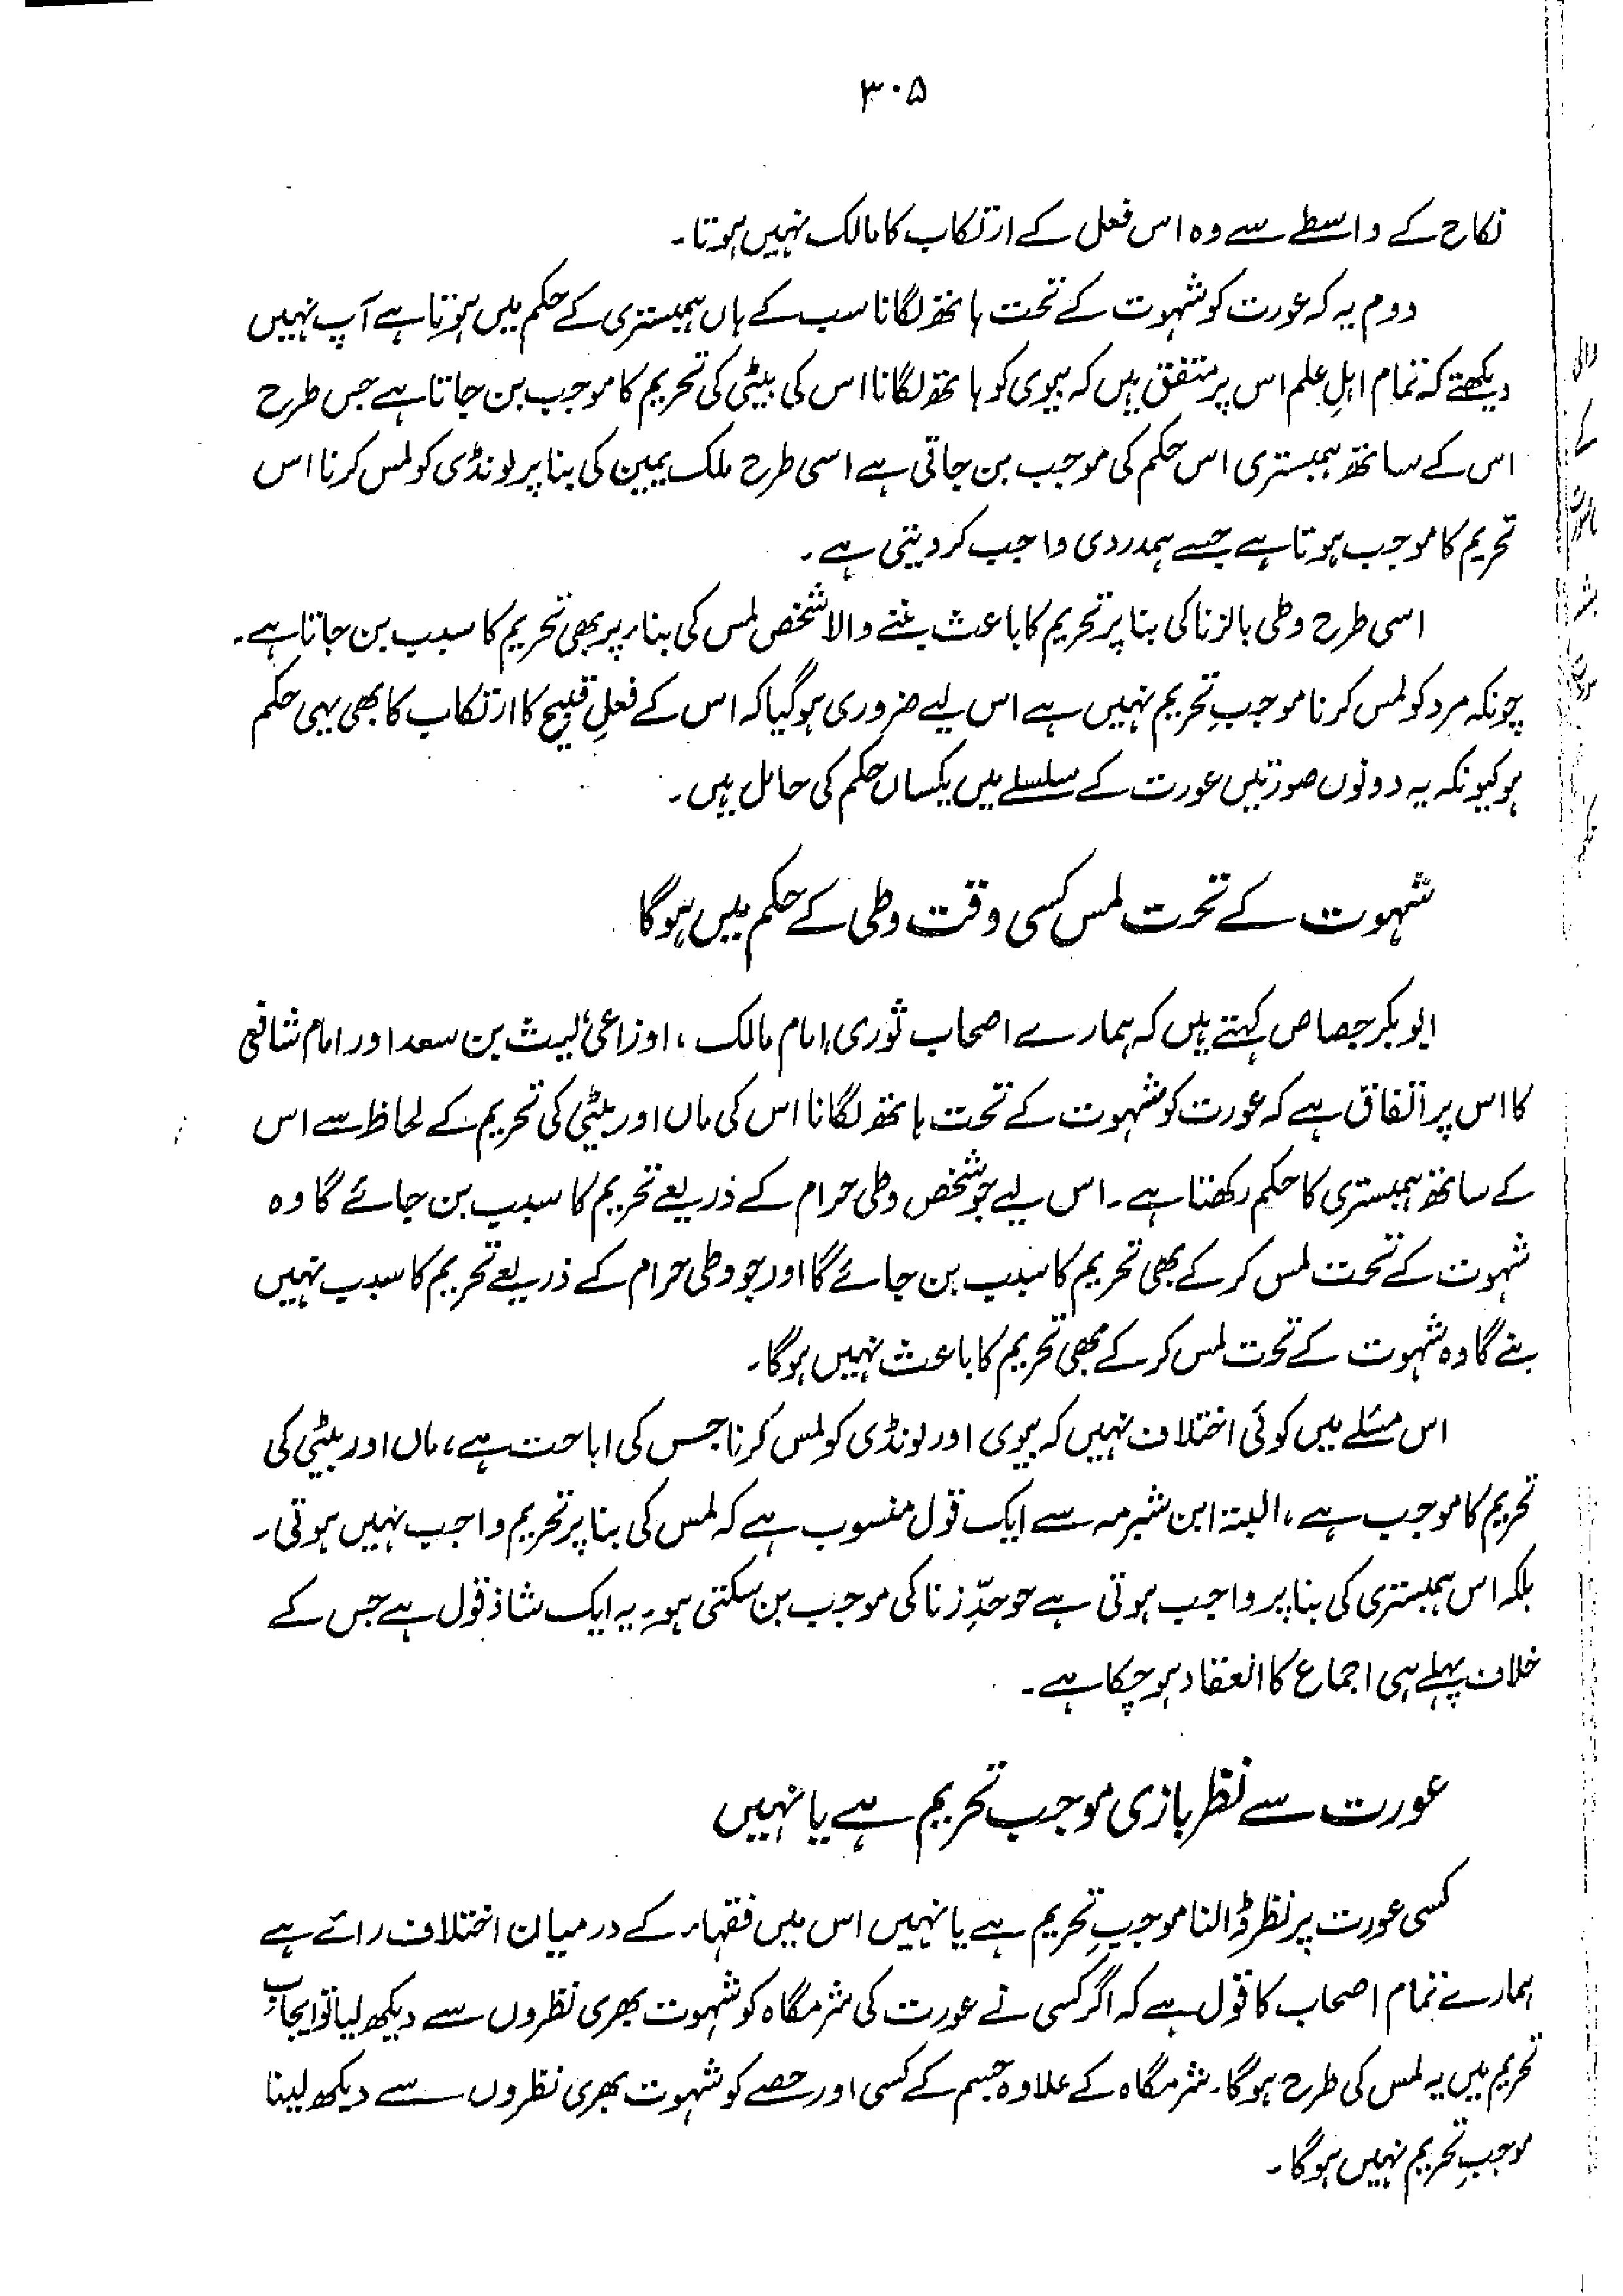 ۳۰۵
نکاح کے واسطے سے وہ اس فعل کے ارتکاب کا مالک نہیں ہوتا۔
دوم یہ کہ عورت کو شہوت کے تحت ہاتھ لگانا سب کے ہاں ہمبستری کے حکم میں ہوتا ہے آپ نہیں
دیکھتے کہ تمام اہلِ علم اس پر متفق ہیں کہ بیوی کو ہاتھ لگانا اس کی بیٹی کی تحریم کا موجب بن جاتا ہے جس طرح
اس کے ساتھ ہمبستری اس حکم کی موجب بن جاتی ہے اسی طرح ملک یمین کی بنا پر لونڈی کو لمس کرنا اس
تحریم کا موجب ہوتا ہے جسے ہمدردی واجب کر دیتی ہے۔
اسی طرح وطی بالزنا کی بنا پر تحریم کا باعث بننے والا شخص لمس کی بناء پر بھی تحریم کا سبب بن جاتا ہے۔
چونکہ مرد کو لمس کرنا موجبِ تحریم نہیں ہے اس لیے ضروری ہو گیا کہ اس کے فعلِ قبیح کا ارتکاب کا بھی یہی حکم
ہو کیونکہ یہ دونوں صورتیں عورت کے سلسلے میں یکساں حکم کی حامل ہیں۔
شہوت کے تحت لمس کسی وقت وطی کے حکم میں ہوگا
ابوبکر جصاص کہتے ہیں کہ ہمارے اصحاب ثوری، امام مالک، اوزاعی، لیث بن سعد اور امام شافعی
کا اس پر اتفاق ہے کہ عورت کو شہوت کے تحت ہاتھ لگانا اس کی ماں اور بیٹی کی تحریم کے لحاظ سے اس
کے ساتھ ہمبستری کا حکم رکھتا ہے۔ اس لیے جو شخص وطی حرام کے ذریعے تحریم کا سبب بن جائے گا وہ
شہوت کے تحت لمس کر کے بھی تحریم کا سبب بن جائے گا اور جو وطی حرام کے ذریعے تحریم کا سبب نہیں
بنے گا وہ شہوت کے تحت لمس کر کے بھی تحریم کا باعث نہیں ہوگا۔
اس مسئلے میں کوئی اختلاف نہیں کہ بیوی اور لونڈی کو لمس کرنا جس کی اباحت ہے، ماں اور بیٹی کی
تحریم کا موجب ہے، البتہ ابن شبرمہ سے ایک قول منسوب ہے کہ لمس کی بنا پر تحریم واجب نہیں ہوتی۔
بلکہ اس ہمبستری کی بنا پر واجب ہوتی ہے جو حدِّ زنا کی موجب بن سکتی ہو۔ یہ ایک شاذ قول ہے جس کے
خلاف پہلے ہی اجماع کا انعقاد ہو چکا ہے۔
عورت سے نظر بازی موجب تحریم ہے یا نہیں
کسی عورت پر نظر ڈالنا موجبِ تحریم ہے یا نہیں اس میں فقہاء کے درمیان اختلاف رائے ہے
ہمارے تمام اصحاب کا قول ہے کہ اگر کسی نے عورت کی شرمگاہ کو شہوت بھری نظروں سے دیکھ لیا تو ایجابِ
تحریم میں یہ لمس کی طرح ہوگا۔ شرمگاہ کے علاوہ جسم کے کسی اور حصے کو شہوت بھری نظروں سے دیکھ لینا
موجبِ تحریم نہیں ہوگا۔